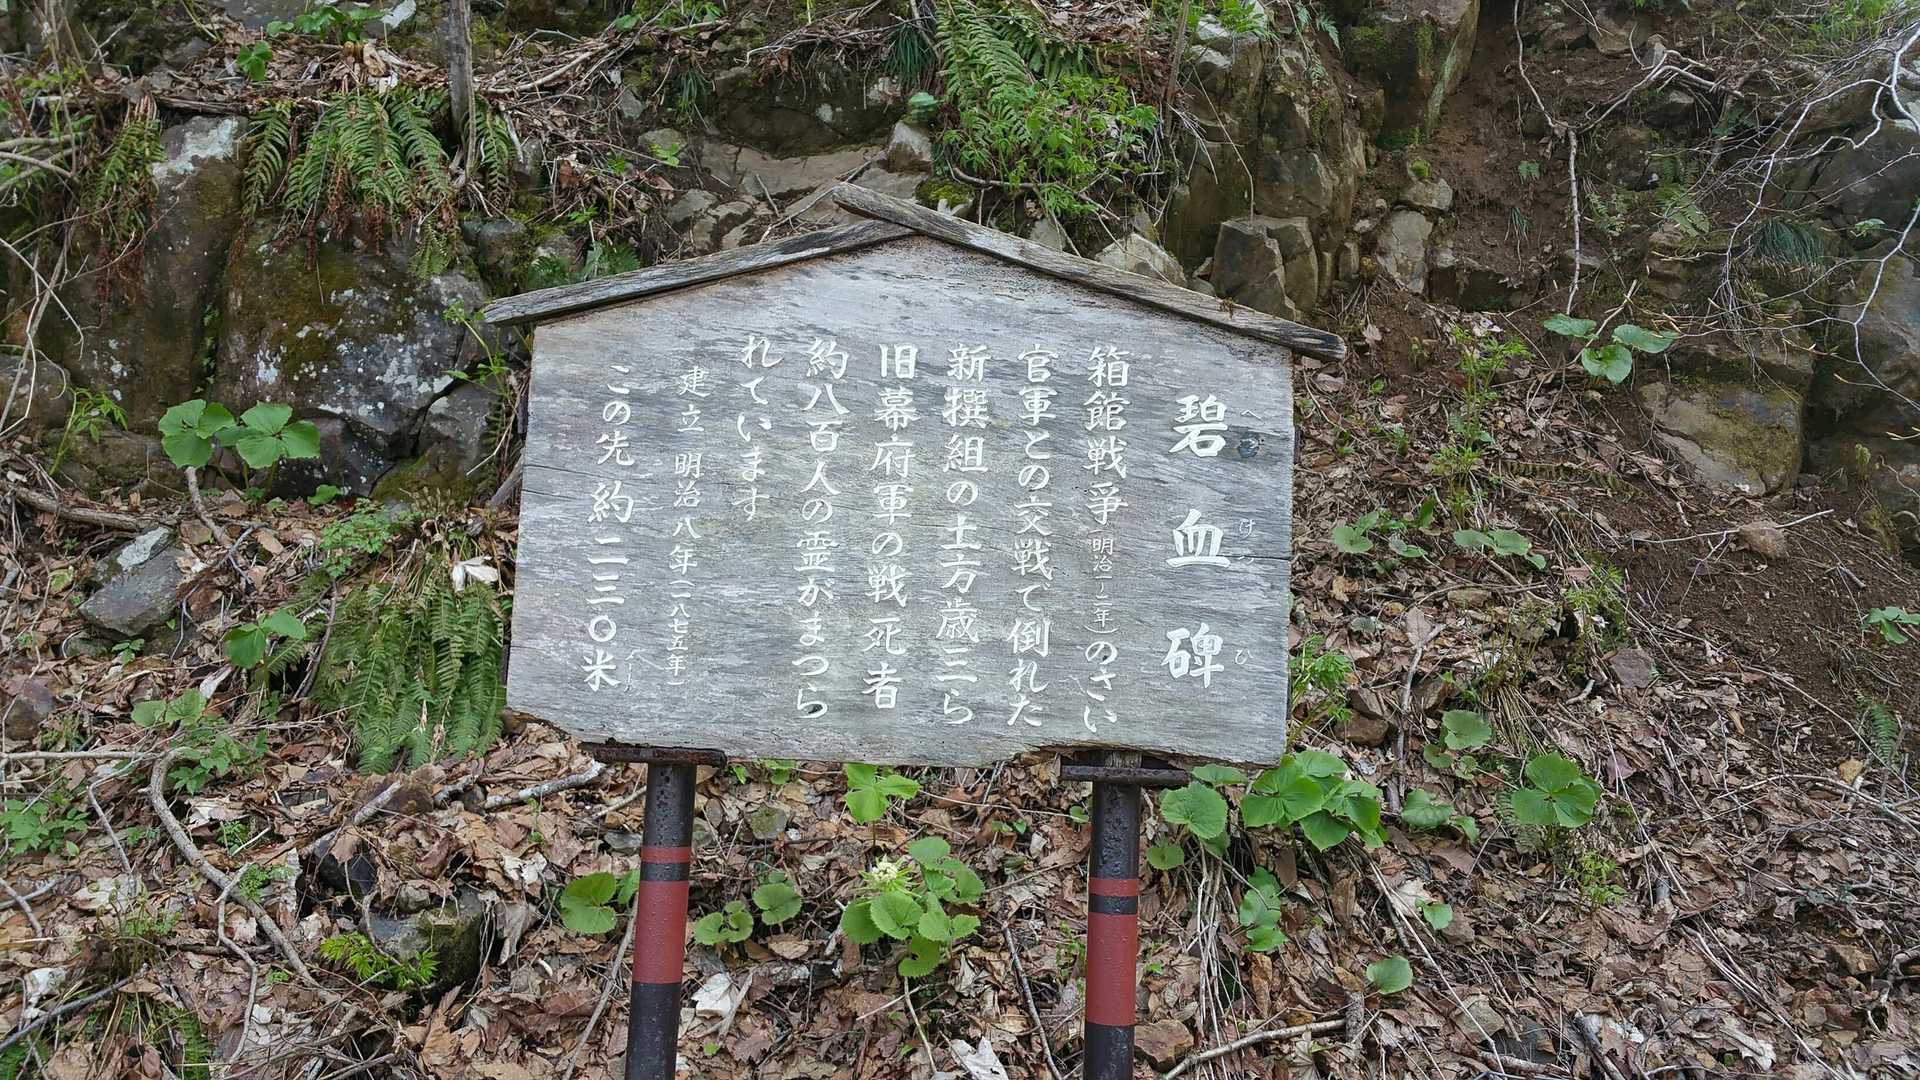 碧血碑
へ けつ ひ
箱館戦争(明治一~二年)のさい
官軍との交戦で倒れた
新撰組の土方歳三ら
旧幕府軍の戦死者
約八百人の霊がまつら
れています
建立 明治八年(一八七五年)
この先 約二三〇米